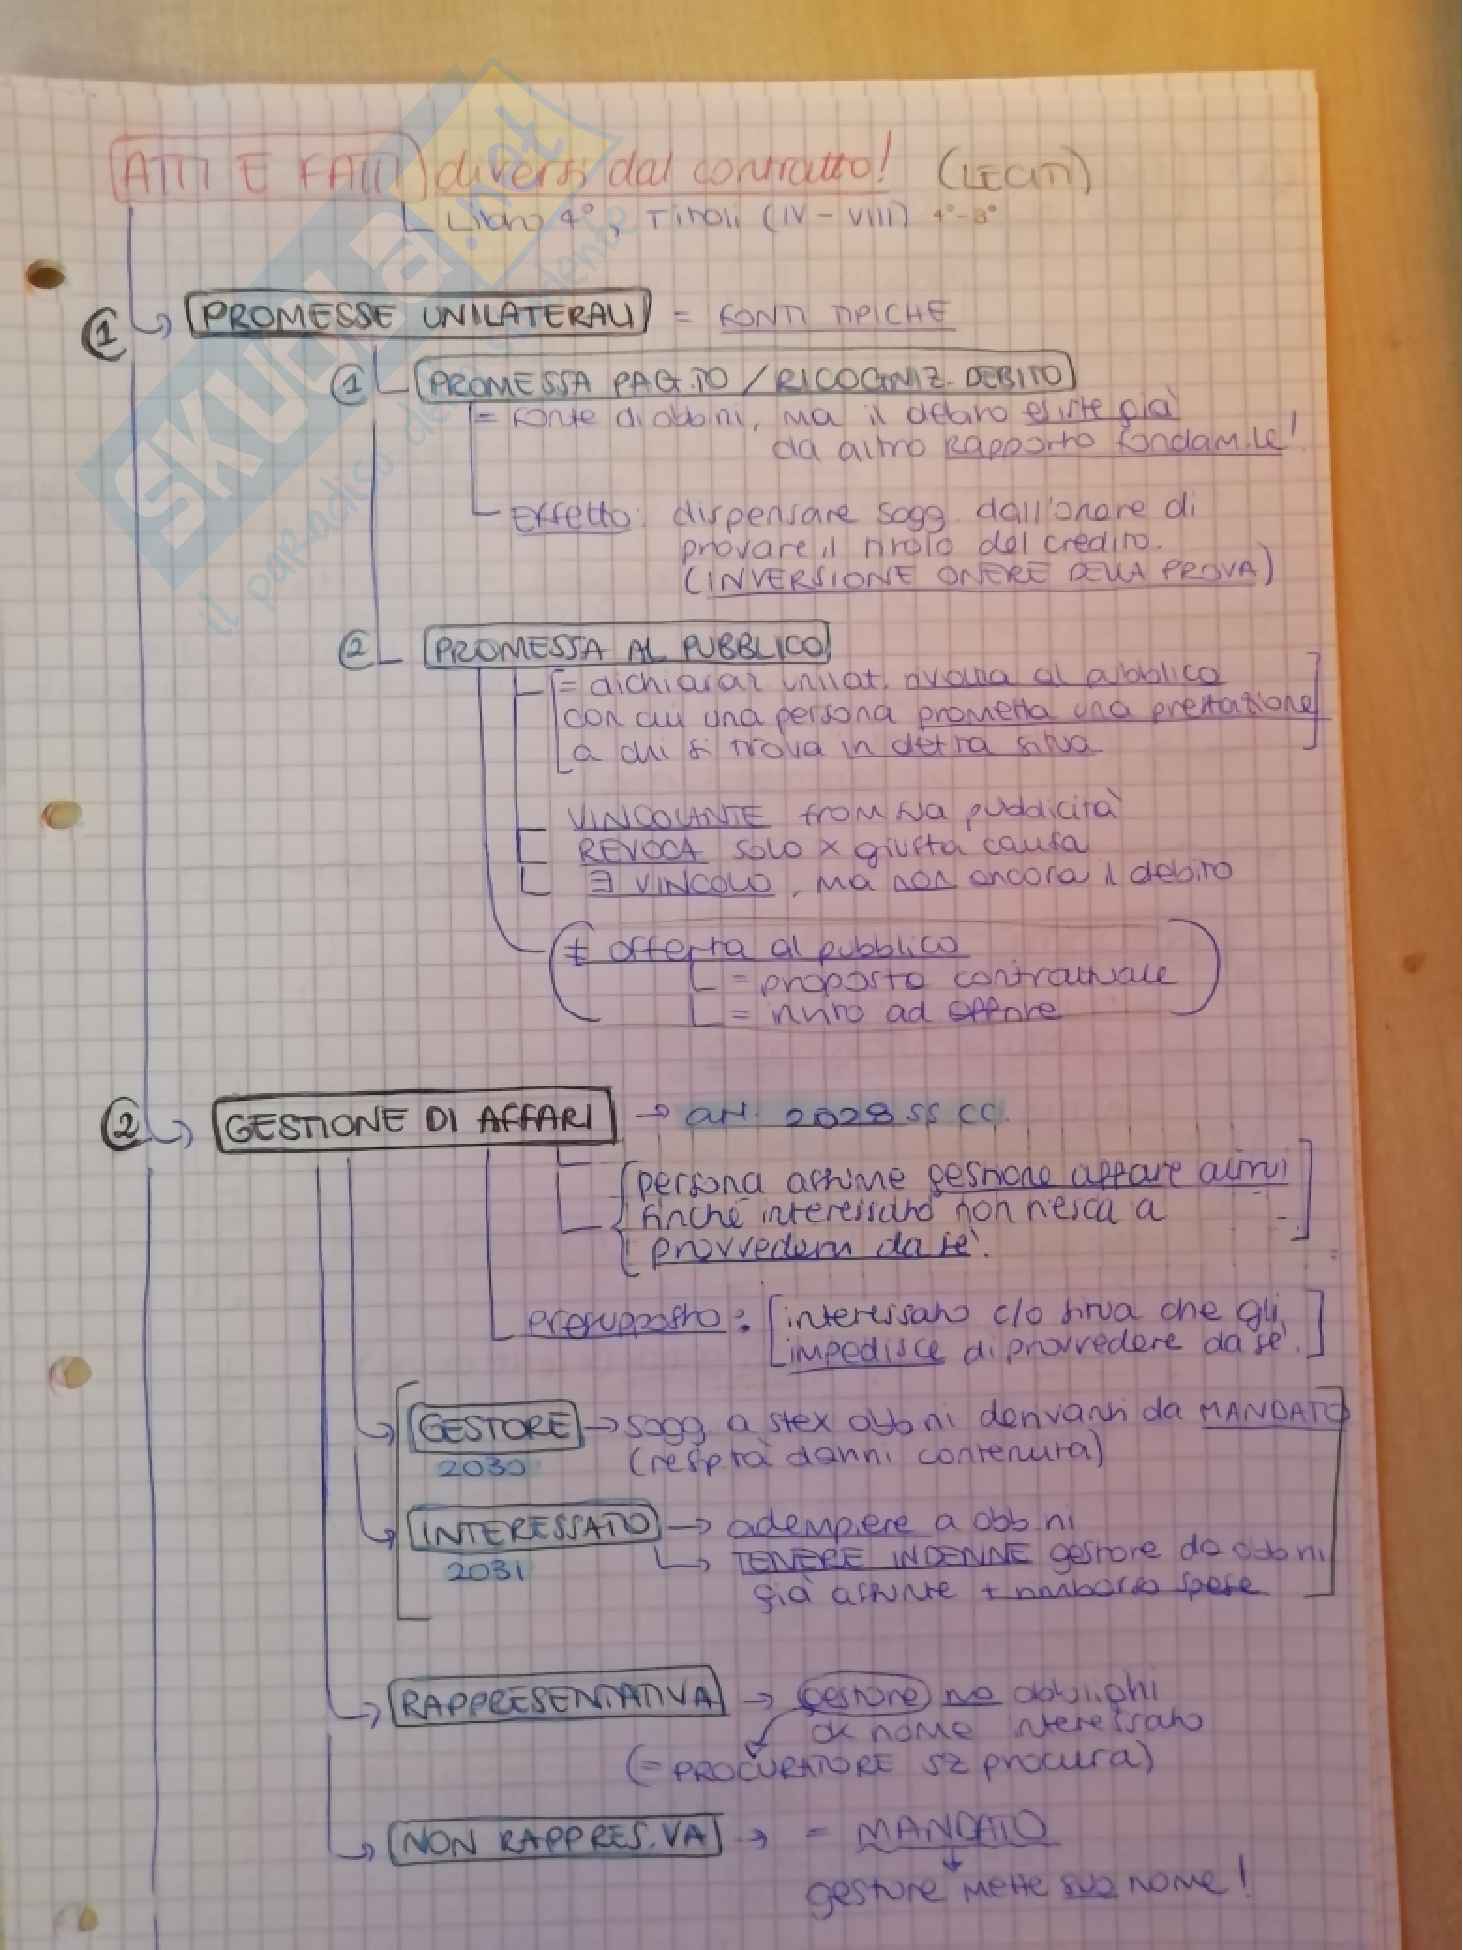 ATTI E FATTI diversi dal contratto! (LECITI)
Libro 4°, Titoli (IV - VIII) 4°-8°
1 PROMESSE UNILATERALI = FONTI TIPICHE
1 PROMESSA PAG.TO / RICOGNIZ. DEBITO
= fonte di obb.ni, ma il debito esiste già
da altro rapporto fondam.le!
Effetto: dispensare sogg. dall'onere di
provare il titolo del credito.
(INVERSIONE ONERE DELLA PROVA)
2 PROMESSA AL PUBBLICO
= dichiaraz unilat. rivolta al pubblico
con cui una persona prometta una prestazione
a chi si trova in det.ta sit.va
VINCOLANTE from sua pubblicità
REVOCA solo x giusta causa
∃ VINCOLO, ma non ancora il debito
≠ offerta al pubblico
= proposta contrattuale
= invito ad offrire
2 GESTIONE DI AFFARI → art. 2028 ss cc.
persona assume gestione affare altrui
finché interessato non riesca a
provvedervi da sé.
presupposto: interessato c/o sit.va che gli
impedisce di provvedere da sé.
GESTORE → sogg. a stex obb.ni derivanti da MANDATO
2030 (resp.tà danni contenuta)
INTERESSATO → adempiere a obb.ni
2031 → TENERE INDENNE gestore da obb.ni
già assunte + rimborso spese
RAPPRESENTATIVA → gestore no obblighi
nome interessato
(= PROCURATORE sz procura)
NON RAPPRES.VA → = MANDATO
gestore mette suo nome!
SKUOLA.net
il paradiso dello studente